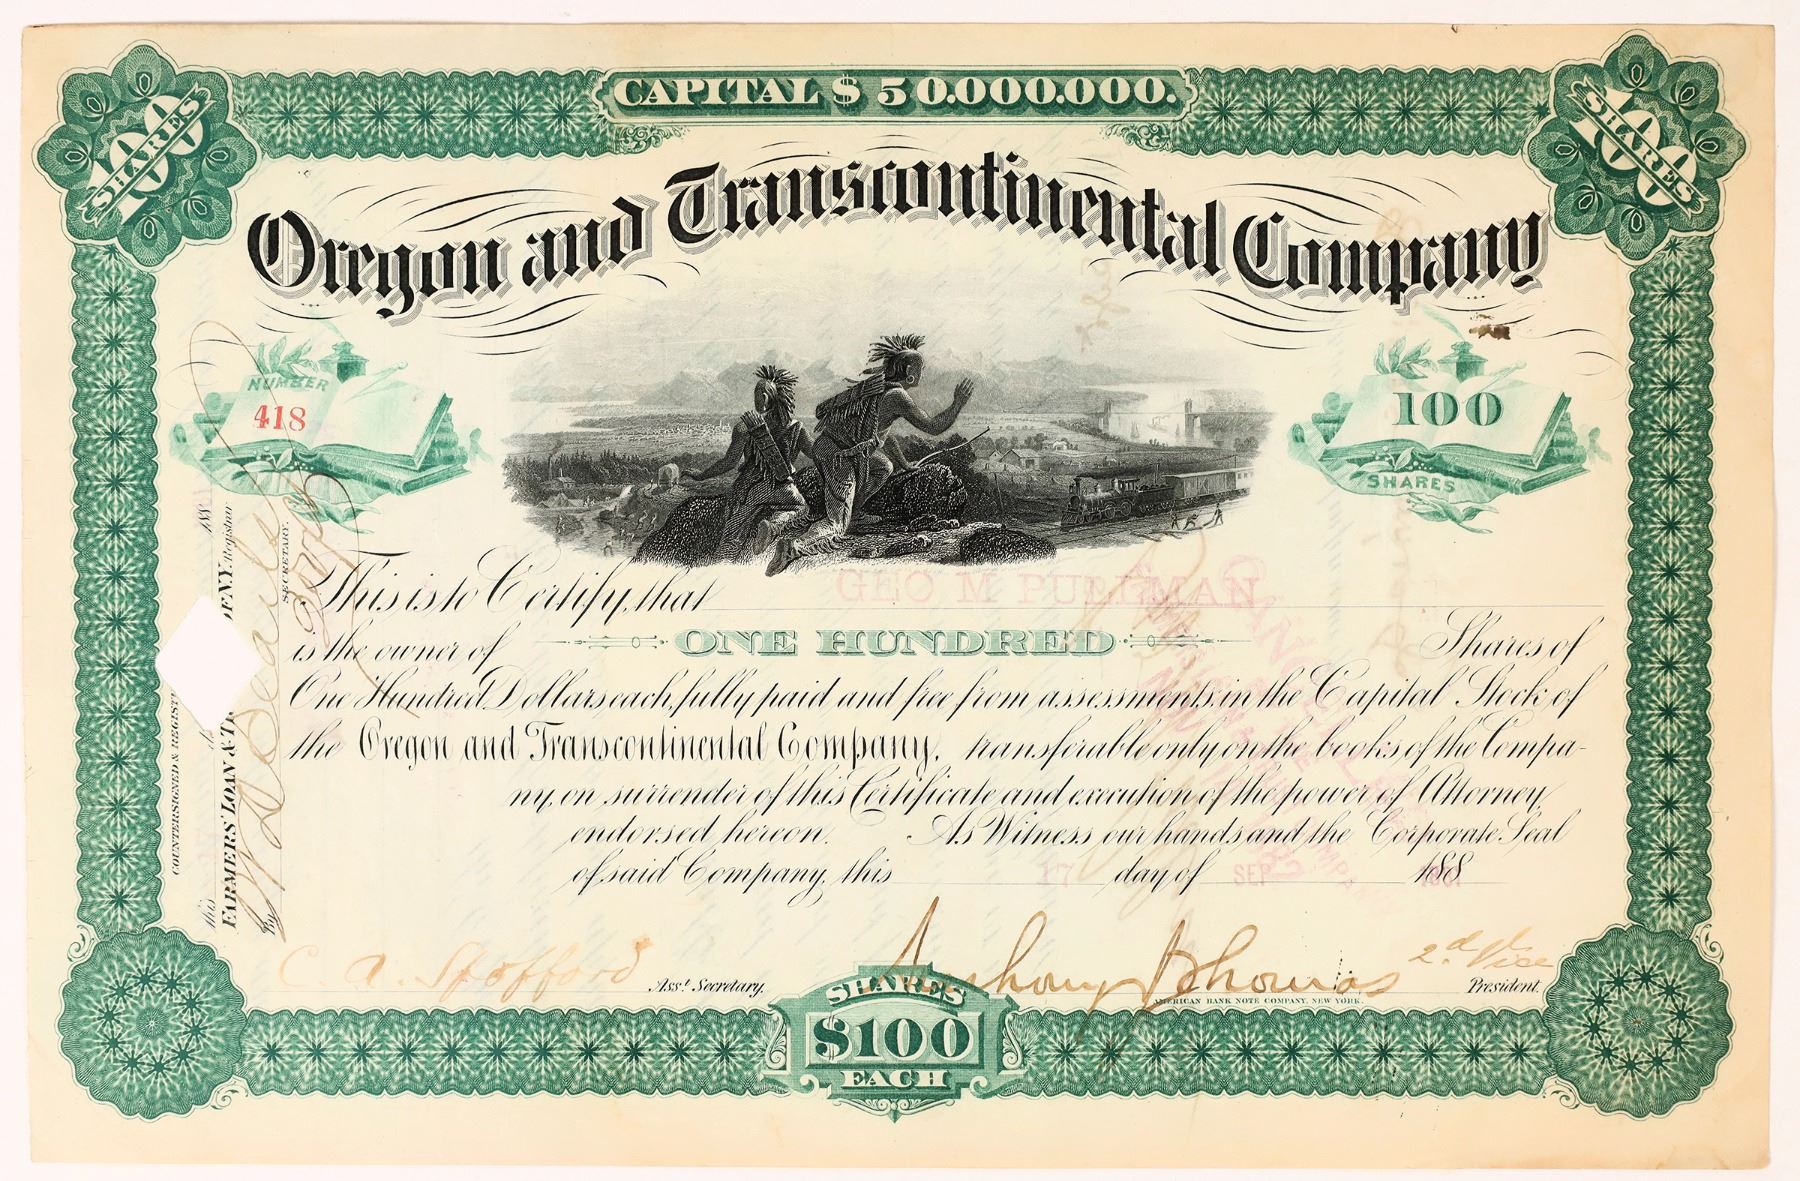 CAPITAL $ 50.000.000.
100 SHARES
100 SHARES
Oregon and Transcontinental Company
NUMBER
418
100
SHARES
This is to Certify, that GEO M PULLMAN
is the owner of ONE HUNDRED Shares of
One Hundred Dollars each, fully paid and free from assessments, in the Capital Stock of
the Oregon and Transcontinental Company, transferable only on the books of the Compa-
ny, on surrender of this Certificate and execution of the power of Attorney,
endorsed hereon. As Witness our hands and the Corporate Seal
of said Company, this 17 day of SEP 188
C. A. Spofford Asst. Secretary.
Anthony J Thomas 2d Vice President.
AMERICAN BANK NOTE COMPANY, NEW YORK.
SHARES
$100
EACH
COUNTERSIGNED & REGIST
this 188
FARMERS' LOAN & TR OF N.Y. Registrar
By SECRETARY.